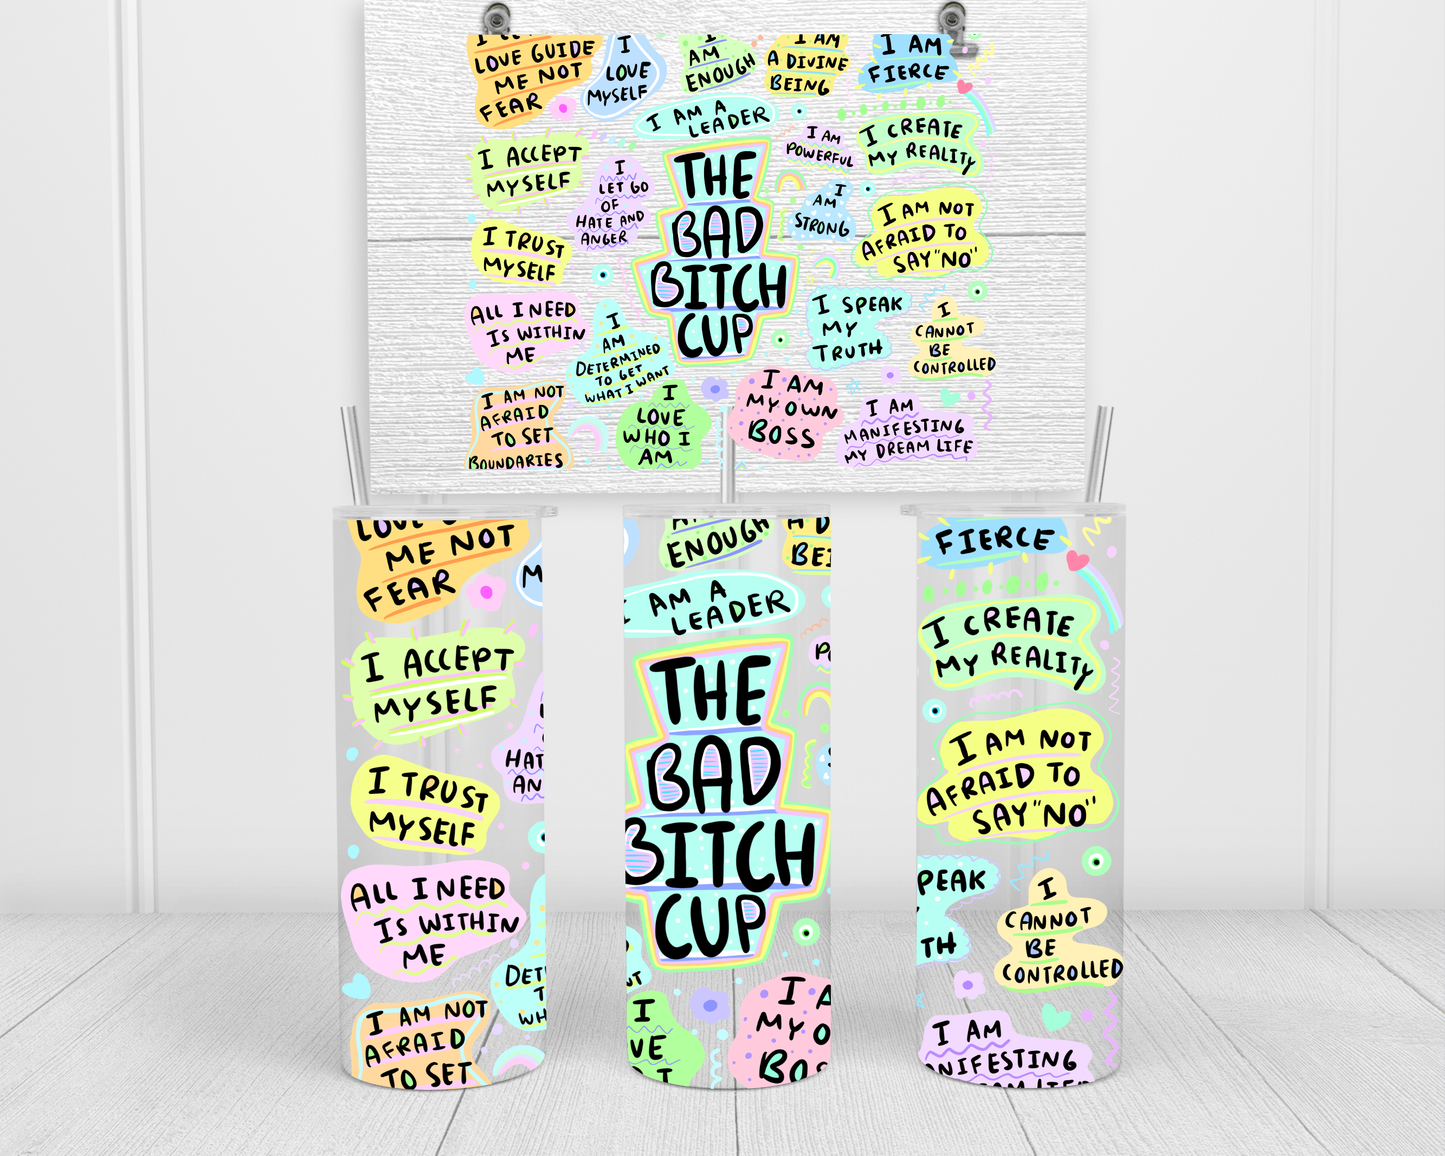 LOVE GUIDE
ME NOT
FEAR
I
LOVE
MYSELF
I
AM
ENOUGH
I AM
A DIVINE
BEING
I AM
FIERCE
I AM A
LEADER
I ACCEPT
MYSELF
I
LET GO
OF
HATE AND
ANGER
THE
BAD
BITCH
CUP
I AM
POWERFUL
I CREATE
MY REALITY
I
AM
STRONG
I AM NOT
AFRAID TO
SAY "NO"
I TRUST
MYSELF
ALL I NEED
IS WITHIN
ME
I
AM
DETERMINED
TO GET
WHAT I WANT
I SPEAK
MY
TRUTH
I
CANNOT
BE
CONTROLLED
I AM NOT
AFRAID
TO SET
BOUNDARIES
I
LOVE
WHO I
AM
I AM
MY OWN
BOSS
I AM
MANIFESTING
MY DREAM LIFE
ME NOT
FEAR
M
I ACCEPT
MYSELF
HAT
AN
I TRUST
MYSELF
ALL I NEED
IS WITHIN
ME
DET
T
WH
I AM NOT
AFRAID
TO SET
ENOUGH
BEI
AM A
LEADER
THE
BAD
BITCH
CUP
I
VE
I A
MY O
BO
FIERCE
I CREATE
MY REALITY
I AM NOT
AFRAID TO
SAY "NO"
PEAK
TH
I
CANNOT
BE
CONTROLLED
I AM
ANIFESTING